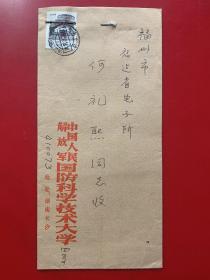 福州市
福建省电子所
何礼熙同志收
中国人民
解放军国防科学技术大学
地址:湖南长沙
410073